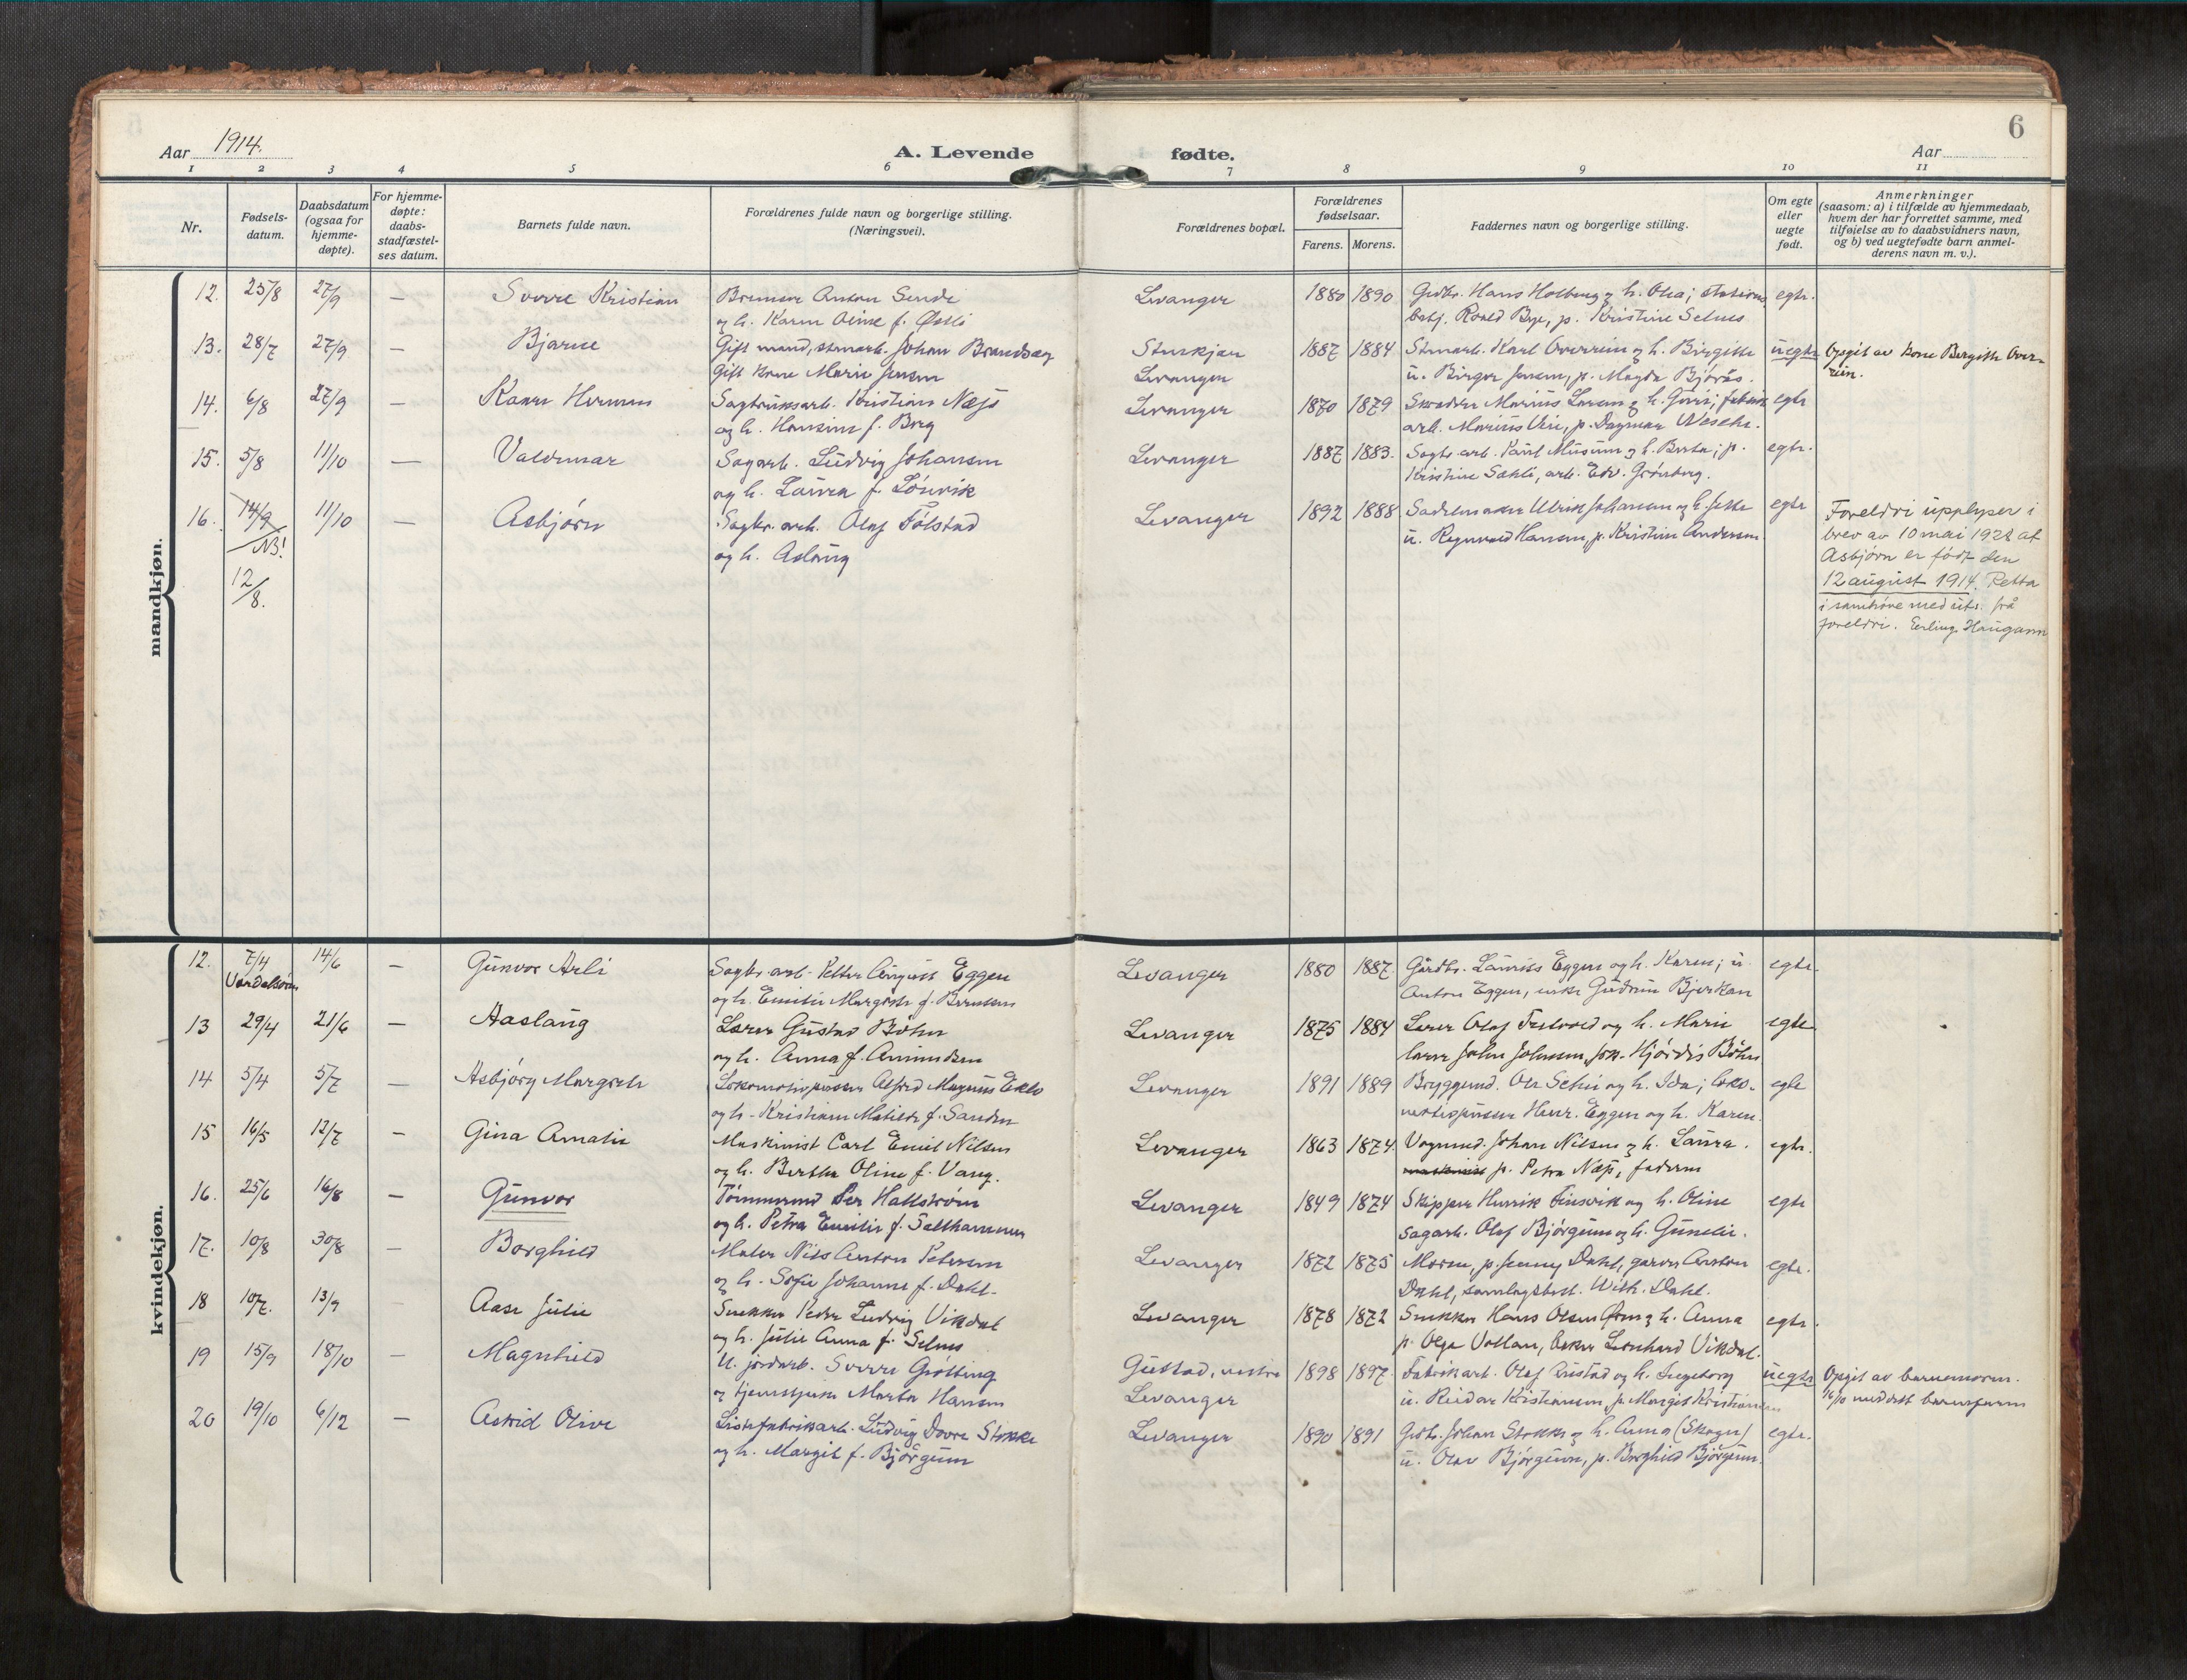 6
Aar 1914.
A. Levende fødte.
Aar
1 2 3 4 5 6 7 8 9 10 11
Nr.
Fødsels-
datum.
Daabsdatum
(ogsaa for
hjemme-
døpte).
For hjemme-
døpte:
daabs-
stadfæstel-
ses datum.
Barnets fulde navn.
Forældrenes fulde navn og borgerlige stilling.
(Næringsvei).
Forældrenes bopæl.
Forældrenes
fødselsaar.
Farens. Morens.
Faddernes navn og borgerlige stilling.
Om egte
eller
uegte
født.
Anmerkninger
(saasom: a) i tilfælde av hjemmedaab,
hvem der har forrettet samme, med
tilføielse av to daabsvidners navn,
og b) ved uegtefødte barn anmel-
derens navn m. v.).
mandkjøn.
12. 25/8 27/9 — Sverre Kristian Anton Sende Levanger 1880 1890 Hans Holberg og h. Olea; stations egte.
og h. Karen f. Østli p. Kristine Selnes
13. 28/7 27/9 — Bjarne Gift mand, stenarb. Johan Brandsæg Stenkjær 1887 1884 Stenarb. Karl Overrein og h. Birgitte uegte Opgit av kone Bergitte Over-
Gift kone Marie Jensen Levanger u. Birger Jensen, p. Magda Bjørås. rein.
14. 6/8 27/9 — Sagbruksarb. Kristian Næss Levanger 1870 1879 Skrædder Marius Larsen og h. Guri; fabrik egte
og h. Hansine f. Berg arb. Marius Vere, p. Dagmar
15. 5/8 11/10 — Valdemar Sagarb. Ludvig Johansen Levanger 1887 1883. Sagbr. arb. Karl og h. Berta; p. egte.
og h. Laura f. Lönvik Kristine arb. Edv. Grønberg.
16. 14/9 11/10 — Asbjørn Sagbr. arb. Olaf Følstad Levanger 1892 1888 Sadelmaker Ulrik Johansen og h. egte Foreldri upplyser i
NB! og h. Aslaug u. Hansen, p. Kristine Andersen brev av 10 mai 1928 at
12/8. Asbjørn er född den
12 august 1914. Retta
i samhöve med utr. frå
foreldri. Erling Haugann
kvindekjøn.
12. 7/4 14/6 — Gunvor Arli Sagbr. arb. Petter August Eggen Levanger 1880 1887 Gårdbr. Laurits Eggen og h. Karen; u. egte.
og h. Emilie Margrete f. Berntsen Anton Eggen, enke Gudrun Bjerkan
13 29/4 21/6 — Aaslaug Lærer Gustav Bøhn Levanger 1875 1884 Lærer Olaf og h. Marie egte
og h. Anna f. Amundsen lærer John Johnsen, frk. Hjørdis Bøhn
14 5/4 5/7 — Asbjørg Margrete Lokomotivpusser Alfred Magnus Eklo Levanger 1891 1889 Bryggemd. Ole og h. Ida; loko- egte
og h. Kristiane Matilde f. Sanden motivpusser Henr. Eggen og h. Karen.
15 16/5 12/7 — Gina Amalie Maskinist Carl Emil Nilsen Levanger 1863 1874. Vognmd. Johan Nilsen og h. Laura. egte.
og h. Berthe Oline f. Vang. p. Petra Næss, faderen
16. 25/6 16/8 — Gunvor Tømmermd Per Hallstrøm Levanger 1849 1874 Skipper Henrik Finsvik og h. Oline egte
og h. Petra Emilie f. Salthammer Sagarb. Olaf Bjørgum og h. Gunelie.
17. 10/8 30/8 — Borghild Maler Nils Anton Petersen Levanger 1872 1875 Moren, p. Jenny Dahl, garver Anton egte.
og h. Sofie Johanne f. Dahl. Dahl, samlagsbest. Wilh. Dahl.
18 10/7. 13/9 — Aase Julie Snekker Peder Ludvig Vikdal Levanger 1878 1872 Snekker Hans Olsen og h. Anna egte.
og h. Julie Anna f. Selnes p. Olga Vollan, Leonhard Vikdal.
19 15/9 18/10 — Magnhild U. jordarb. Sverre Grøtting Gustad, 1898 1897. Fabrikarb. Olaf Rustad og h. Ingeborg uegte Opgit av barnemoren.
og tjenestpike Marta Hansen Levanger u. Reidar Kristiansen, p. Margit Kristiansen meddelt barnefaren
20 19/10 6/12 — Astrid Olive Listefabrikarb. Ludvig Dovre Stokke Levanger 1890 1891 Johan Stokke og h. Anna (Skogn) egte.
og h. Margit f. Bjørgum u. Olav Bjørgum, p. Borghild Bjørgum.